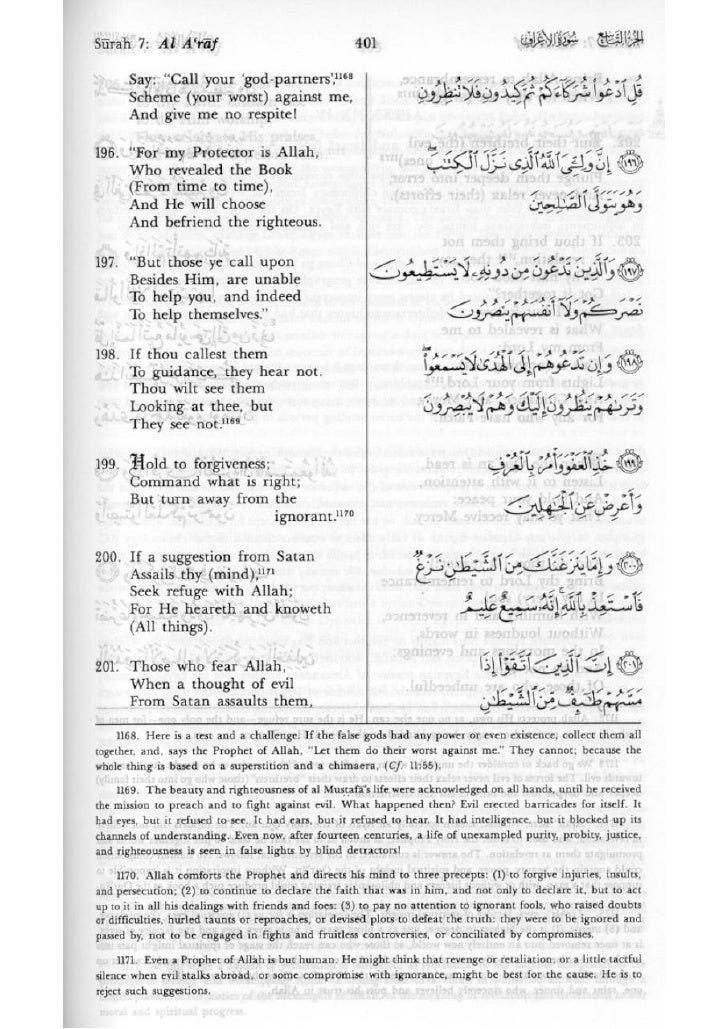 Sūrah 7: Al A'rāf 401 سُورَةُ الأَعْرَافِ الجُزْءُ التَّاسِعُ
Say: "Call your 'god-partners',1168
Scheme (your worst) against me,
And give me no respite!
قُلِ ٱدْعُوا۟ شُرَكَآءَكُمْ ثُمَّ كِيدُونِ فَلَا تُنظِرُونِ
196. "For my Protector is Allah,
Who revealed the Book
(From time to time),
And He will choose
And befriend the righteous.
﴿١٩٦﴾ إِنَّ وَلِـِّۧىَ ٱللَّهُ ٱلَّذِى نَزَّلَ ٱلْكِتَـٰبَ
وَهُوَ يَتَوَلَّى ٱلصَّـٰلِحِينَ
197. "But those ye call upon
Besides Him, are unable
To help you, and indeed
To help themselves."
﴿١٩٧﴾ وَٱلَّذِينَ تَدْعُونَ مِن دُونِهِۦ لَا يَسْتَطِيعُونَ
نَصْرَكُمْ وَلَآ أَنفُسَهُمْ يَنصُرُونَ
198. If thou callest them
To guidance, they hear not.
Thou wilt see them
Looking at thee, but
They see not.1169
﴿١٩٨﴾ وَإِن تَدْعُوهُمْ إِلَى ٱلْهُدَىٰ لَا يَسْمَعُوا۟
وَتَرَىٰهُمْ يَنظُرُونَ إِلَيْكَ وَهُمْ لَا يُبْصِرُونَ
199. Hold to forgiveness;
Command what is right;
But turn away from the
ignorant.1170
﴿١٩٩﴾ خُذِ ٱلْعَفْوَ وَأْمُرْ بِٱلْعُرْفِ
وَأَعْرِضْ عَنِ ٱلْجَـٰهِلِينَ
200. If a suggestion from Satan
Assails thy (mind),1171
Seek refuge with Allah;
For He heareth and knoweth
(All things).
﴿٢٠٠﴾ وَإِمَّا يَنزَغَنَّكَ مِنَ ٱلشَّيْطَـٰنِ نَزْغٌ
فَٱسْتَعِذْ بِٱللَّهِ إِنَّهُۥ سَمِيعٌ عَلِيمٌ
201. Those who fear Allah,
When a thought of evil
From Satan assaults them,
﴿٢٠١﴾ إِنَّ ٱلَّذِينَ ٱتَّقَوْا۟ إِذَا
مَسَّهُمْ طَـٰٓئِفٌ مِّنَ ٱلشَّيْطَـٰنِ
1168. Here is a test and a challenge. If the false gods had any power or even existence, collect them all
together, and, says the Prophet of Allah, "Let them do their worst against me." They cannot; because the
whole thing is based on a superstition and a chimaera, (Cf. 11:55),
1169. The beauty and righteousness of al Mustafā's life were acknowledged on all hands, until he received
the mission to preach and to fight against evil. What happened then? Evil erected barricades for itself. It
had eyes, but it refused to see. It had ears, but it refused to hear. It had intelligence, but it blocked up its
channels of understanding. Even now, after fourteen centuries, a life of unexampled purity, probity, justice,
and righteousness is seen in false lights by blind detractors!
1170. Allah comforts the Prophet and directs his mind to three precepts: (1) to forgive injuries, insults,
and persecution; (2) to continue to declare the faith that was in him, and not only to declare it, but to act
up to it in all his dealings with friends and foes: (3) to pay no attention to ignorant fools, who raised doubts
or difficulties, hurled taunts or reproaches, or devised plots to defeat the truth: they were to be ignored and
passed by, not to be engaged in fights and fruitless controversies, or conciliated by compromises.
1171. Even a Prophet of Allah is but human. He might think that revenge or retaliation, or a little tactful
silence when evil stalks abroad, or some compromise with ignorance, might be best for the cause. He is to
reject such suggestions.